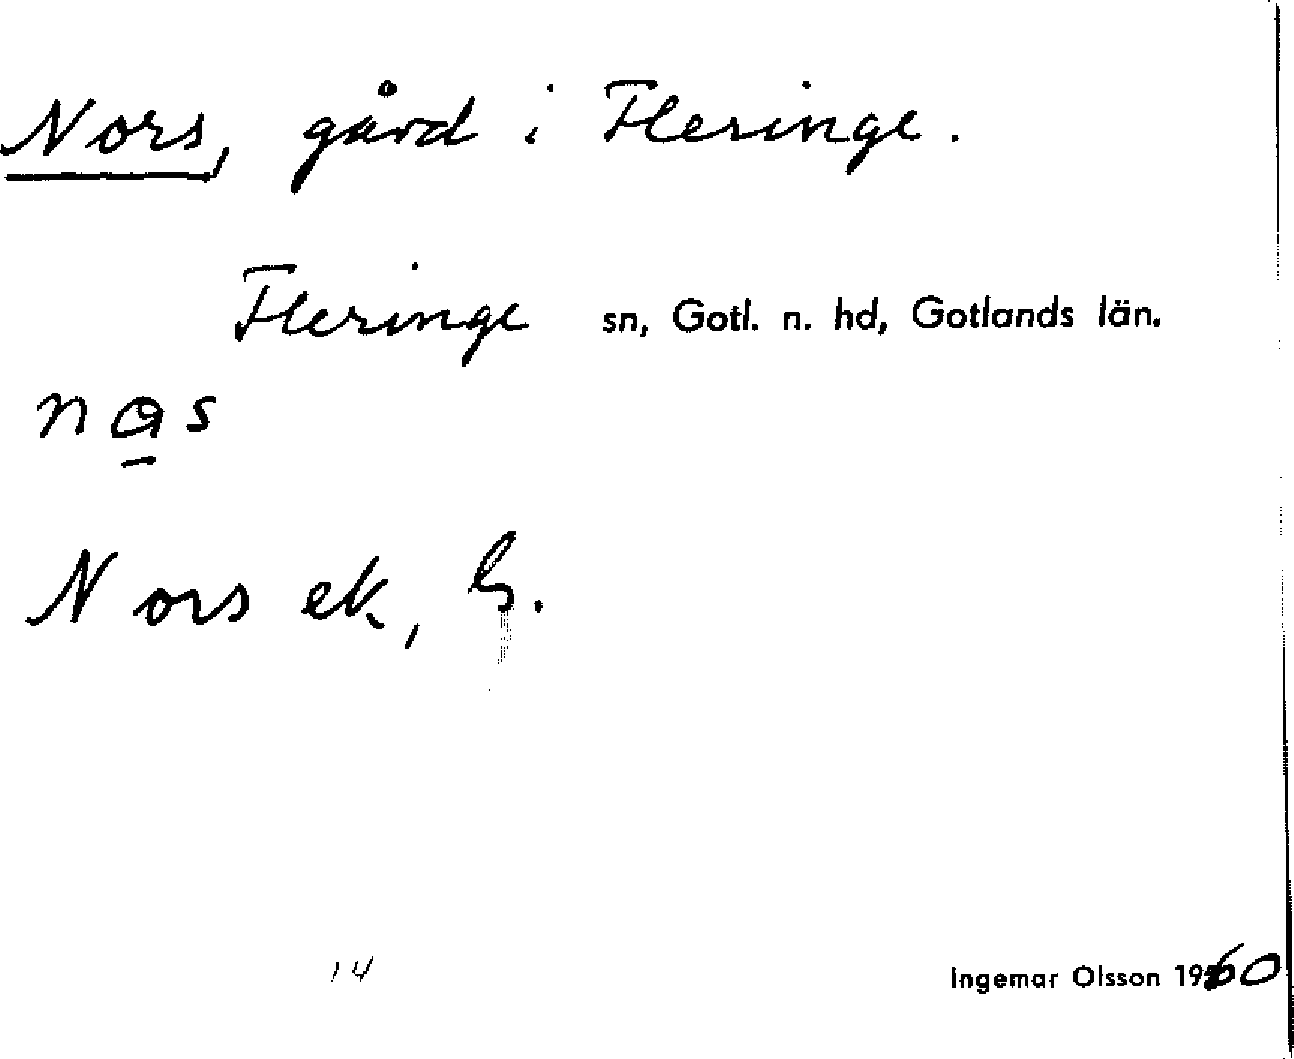 Nors, gård i Fleringe.
Fleringe sn, Gotl. n. hd, Gotlands län.
Nors ek,
14
Ingemar Olsson 1960